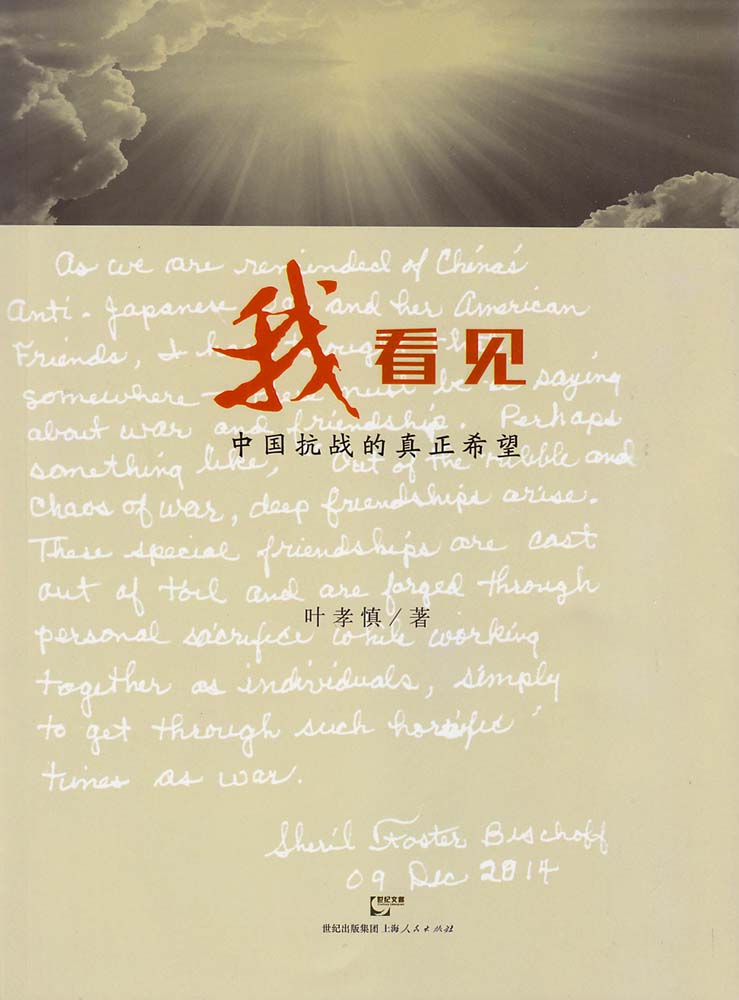 As we are reminded of China's
Anti-Japanese and her American
Friends, I
somewhere must be a saying
about war and friendship. Perhaps
something like, "Out of the rubble and
chaos of war, deep friendships arise.
These special friendships are cast
out of toil and are forged through
personal sacrifice while working
together as individuals, simply
to get through such horrific
times as war.
我看见
中国抗战的真正希望
叶孝慎/著
Sheril Foster Bischoff
09 Dec 2014
世纪文睿
世纪出版集团 上海人民出版社